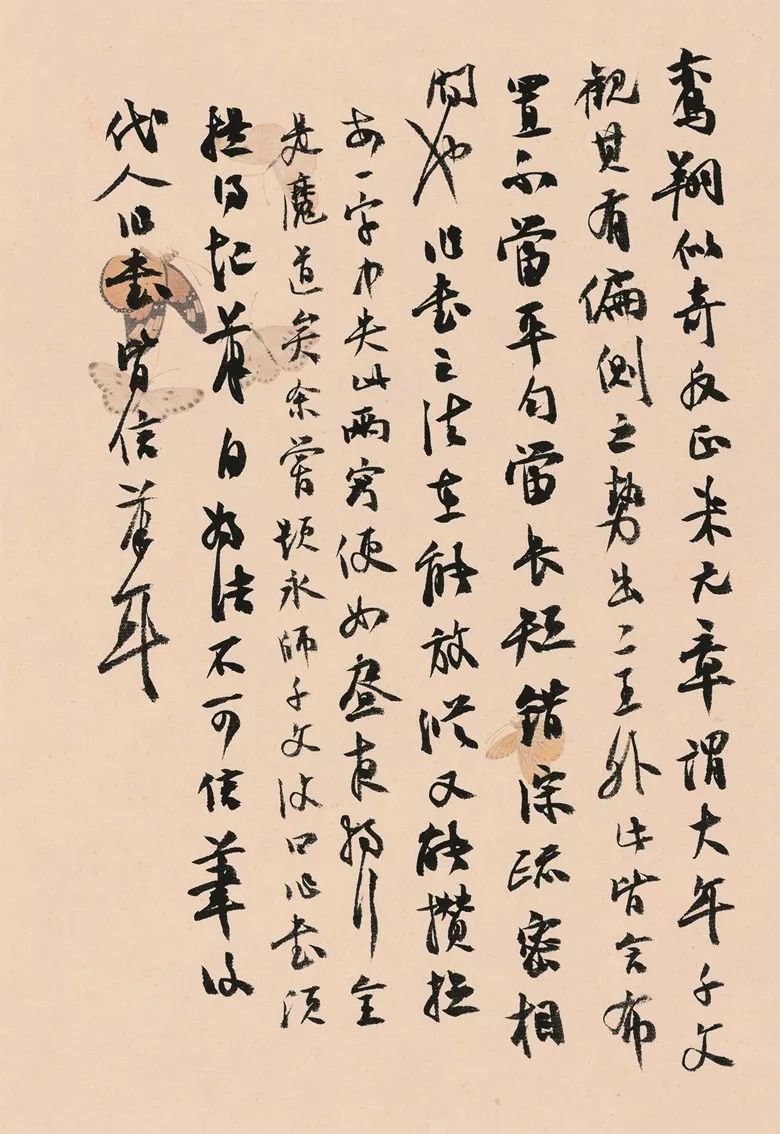 鸞翔似奇反正米元章謂大年千文
觀其有偏側之勢出二王外此皆言布
置不當平勻當長短錯綜疏密相
間也作書之法在能放縱又能攢捉
每一字中失此兩竅便如晝夜獨行全
是魔道矣余嘗題永師千文後曰作書須
提得起筆自為結不可信筆後
代人作書皆信筆耳